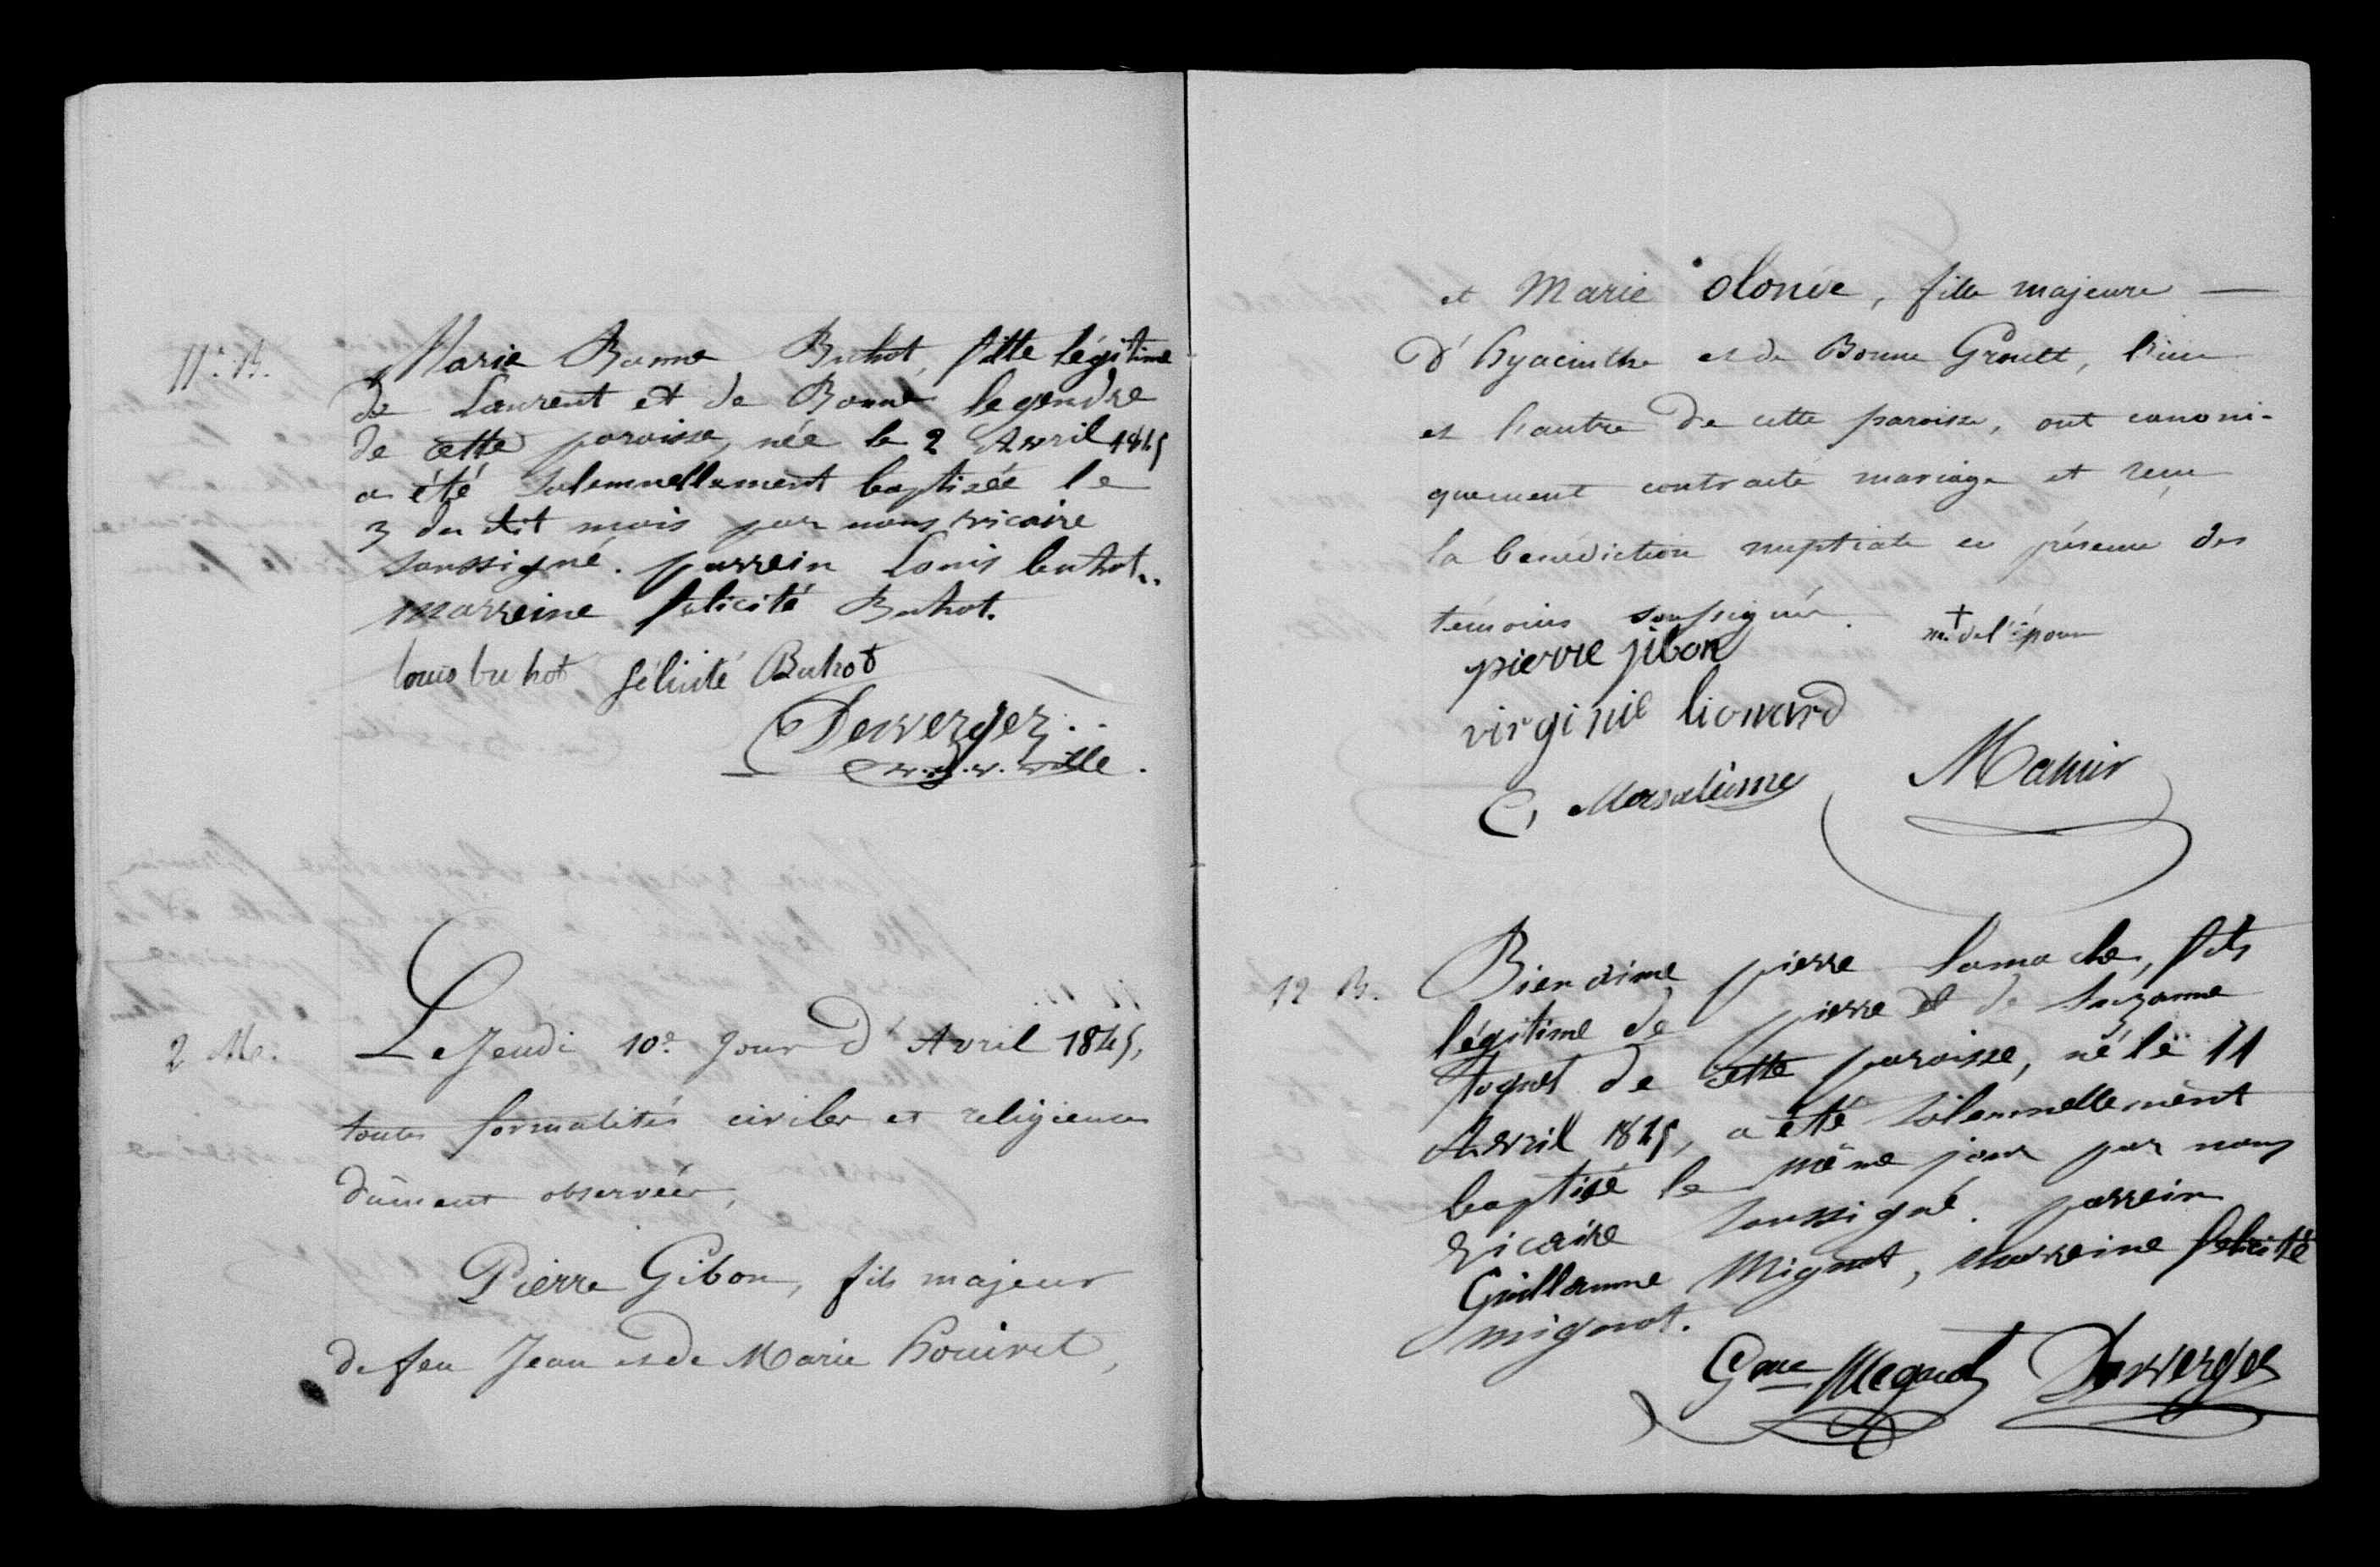 11e. B.
Marie Bonne Buhot, fille légitime
de Laurent et de Bonne legendre
de cette paroisse, née le 2 Avril 1845
a été solemnellement baptisée le
3 du dit mois par nous vicaire
soussigné. parrein Louis buhot..
marreine félicité Buhot.
louis buhot félicité Buhot
Desverger
2 M.
Le Jeudi 10e. jour d'Avril 1845,
toutes formalités civiles et religieuses
dûment observées,
Pierre Gibon, fils majeur
de feu Jean et de Marie houivet,
et Marie olonée, fille majeure —
d'hyacinthe et de Bonne Groult, l'un
et l'autre de cette paroisse, ont canoni-
quement contracté mariage et reçu
la bénédiction nuptiale en présence des
témoins soussignés.
+
mq. de l'épouse
pierre jibon
virginie lionard
Mahier
12 B.
Bien aimé pierre Lamache, fils
légitime de pierre et de Suzanne
toquet de cette paroisse, né le 11
Avril 1845, a été solemnellement
baptisé le même jour par nous
vicaire soussigné. parrein
Guillaume Mignot, marreine felicité
mignot.
Gme Mignot Desverger